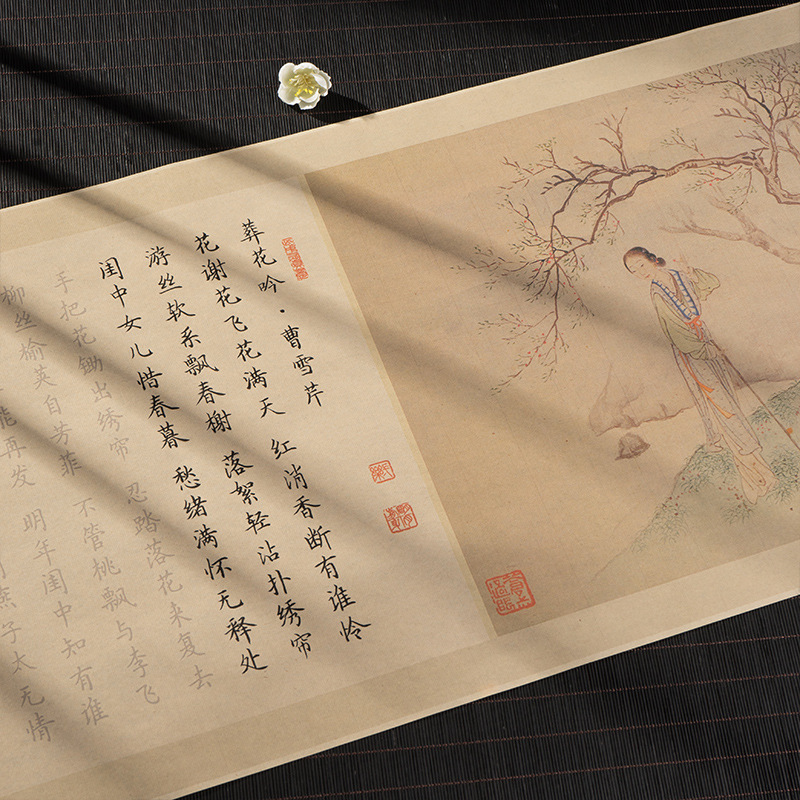 葬花吟·曹雪芹
花谢花飞花满天 红消香断有谁怜
游丝软系飘春榭 落絮轻沾扑绣帘
闺中女儿惜春暮 愁绪满怀无释处
手把花锄出绣帘 忍踏落花来复去
柳丝榆荚自芳菲 不管桃飘与李飞
能再发 明年闺中知有谁
燕子太无情